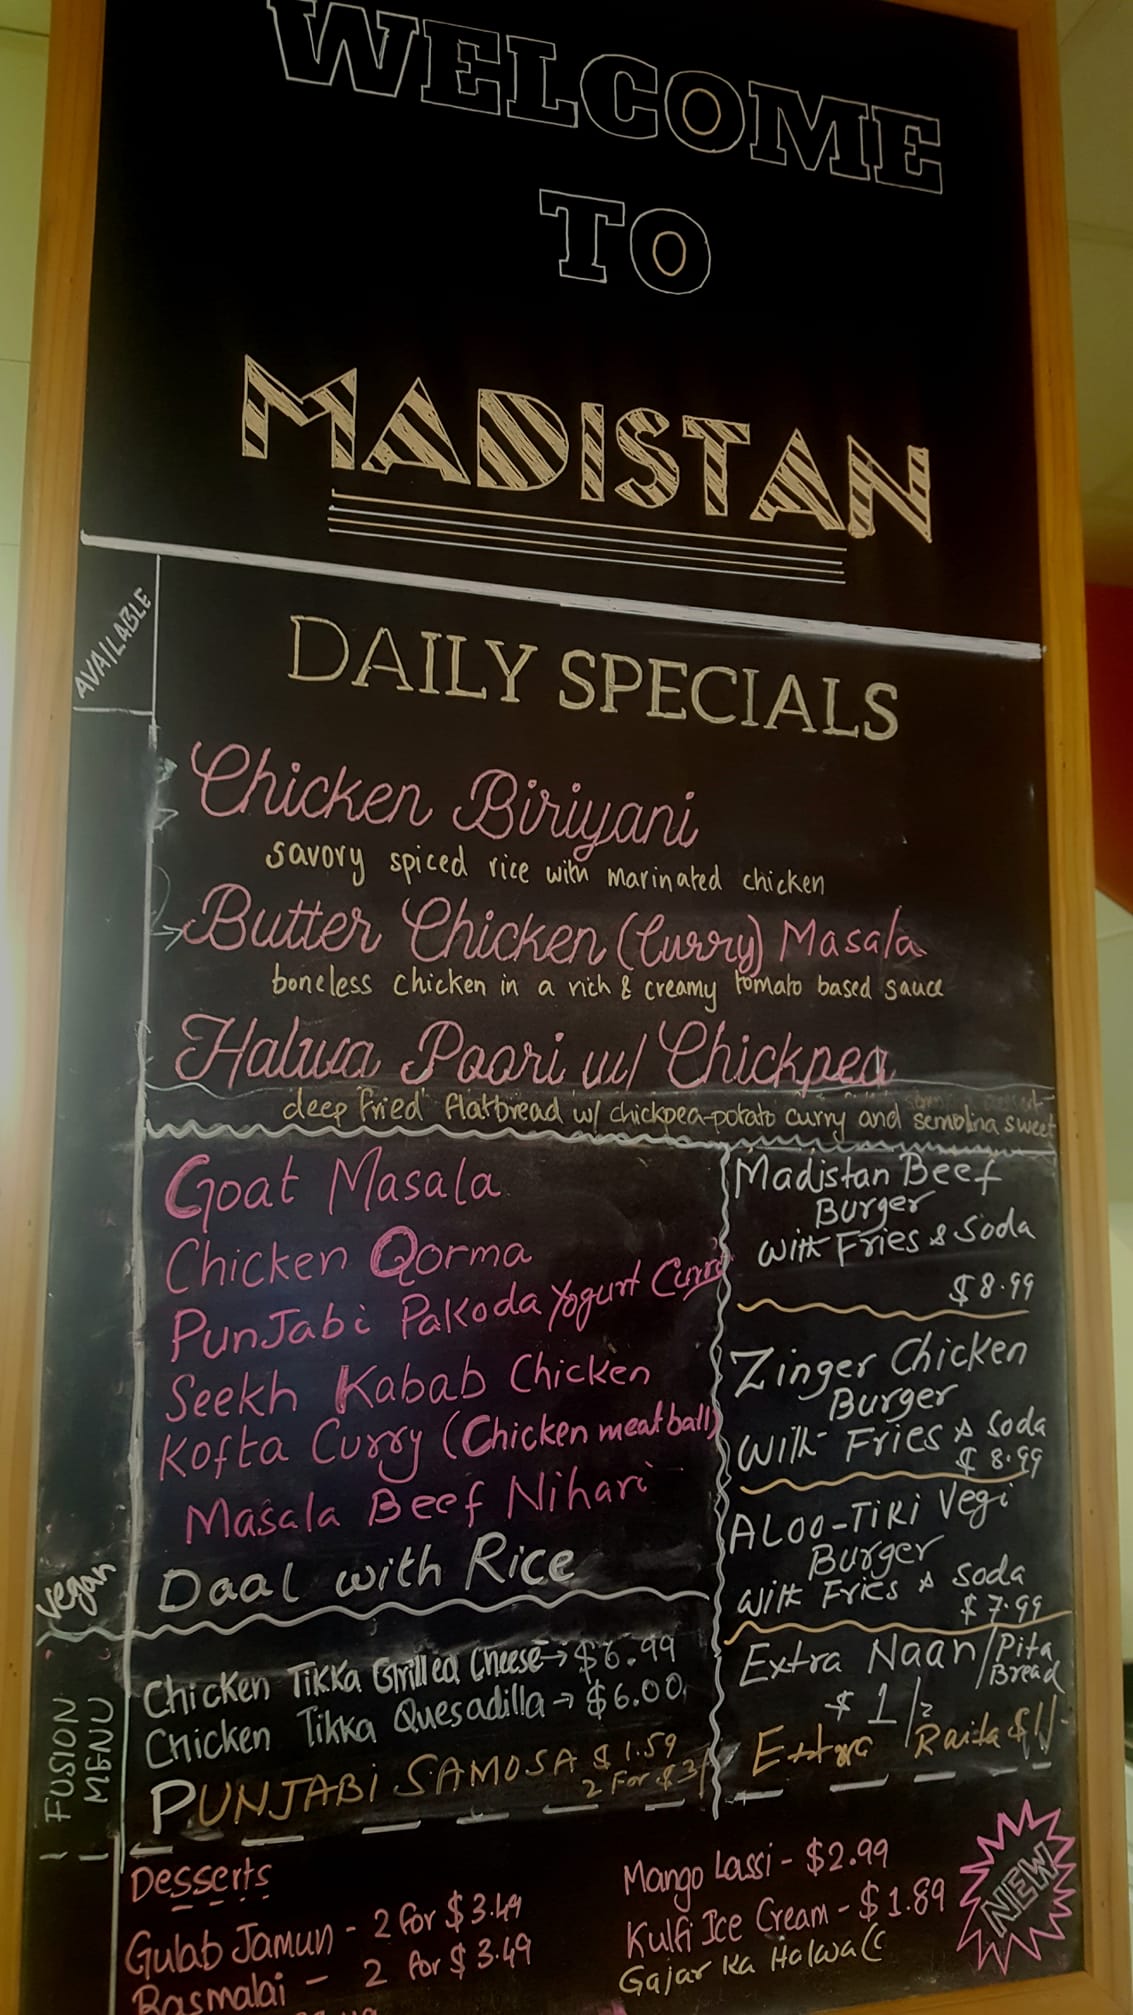 WELCOME
TO
MADISTAN
AVAILABLE
DAILY SPECIALS
Chicken Biriyani
savory spiced rice with marinated chicken
Butter Chicken (Curry) Masala
boneless chicken in a rich & creamy tomato based sauce
Halwa Poori w/ Chickpea
deep fried flatbread w/ chickpea-potato curry and semolina sweet
Goat Masala
Chicken Qorma
PunJabi Pakoda Yogurt Curry
Seekh Kabab Chicken
Kofta Curry (Chicken meatball)
Masala Beef Nihari
vegan
Daal with Rice
FUSION
MENU
Chicken Tikka Grilled Cheese → $6.99
Chicken Tikka Quesadilla → $6.00
PUNJABi SAMOSA $1.59
2 For $3/
Madistan Beef
Burger
with Fries & Soda
$8.99
Zinger Chicken
Burger
with Fries & Soda
$8.99
ALOO-TiKi Vegi
Burger
with Fries & Soda
$7.99
Extra Naan/Pita
Bread
$1/2
Extra Raita $1/-
Desserts
Gulab Jamun - 2 for $3.49
Rasmalai - 2 for $3.49
Mango Lassi - $2.99
Kulfi Ice Cream - $1.89
Gajar Ka Halwa
NEW